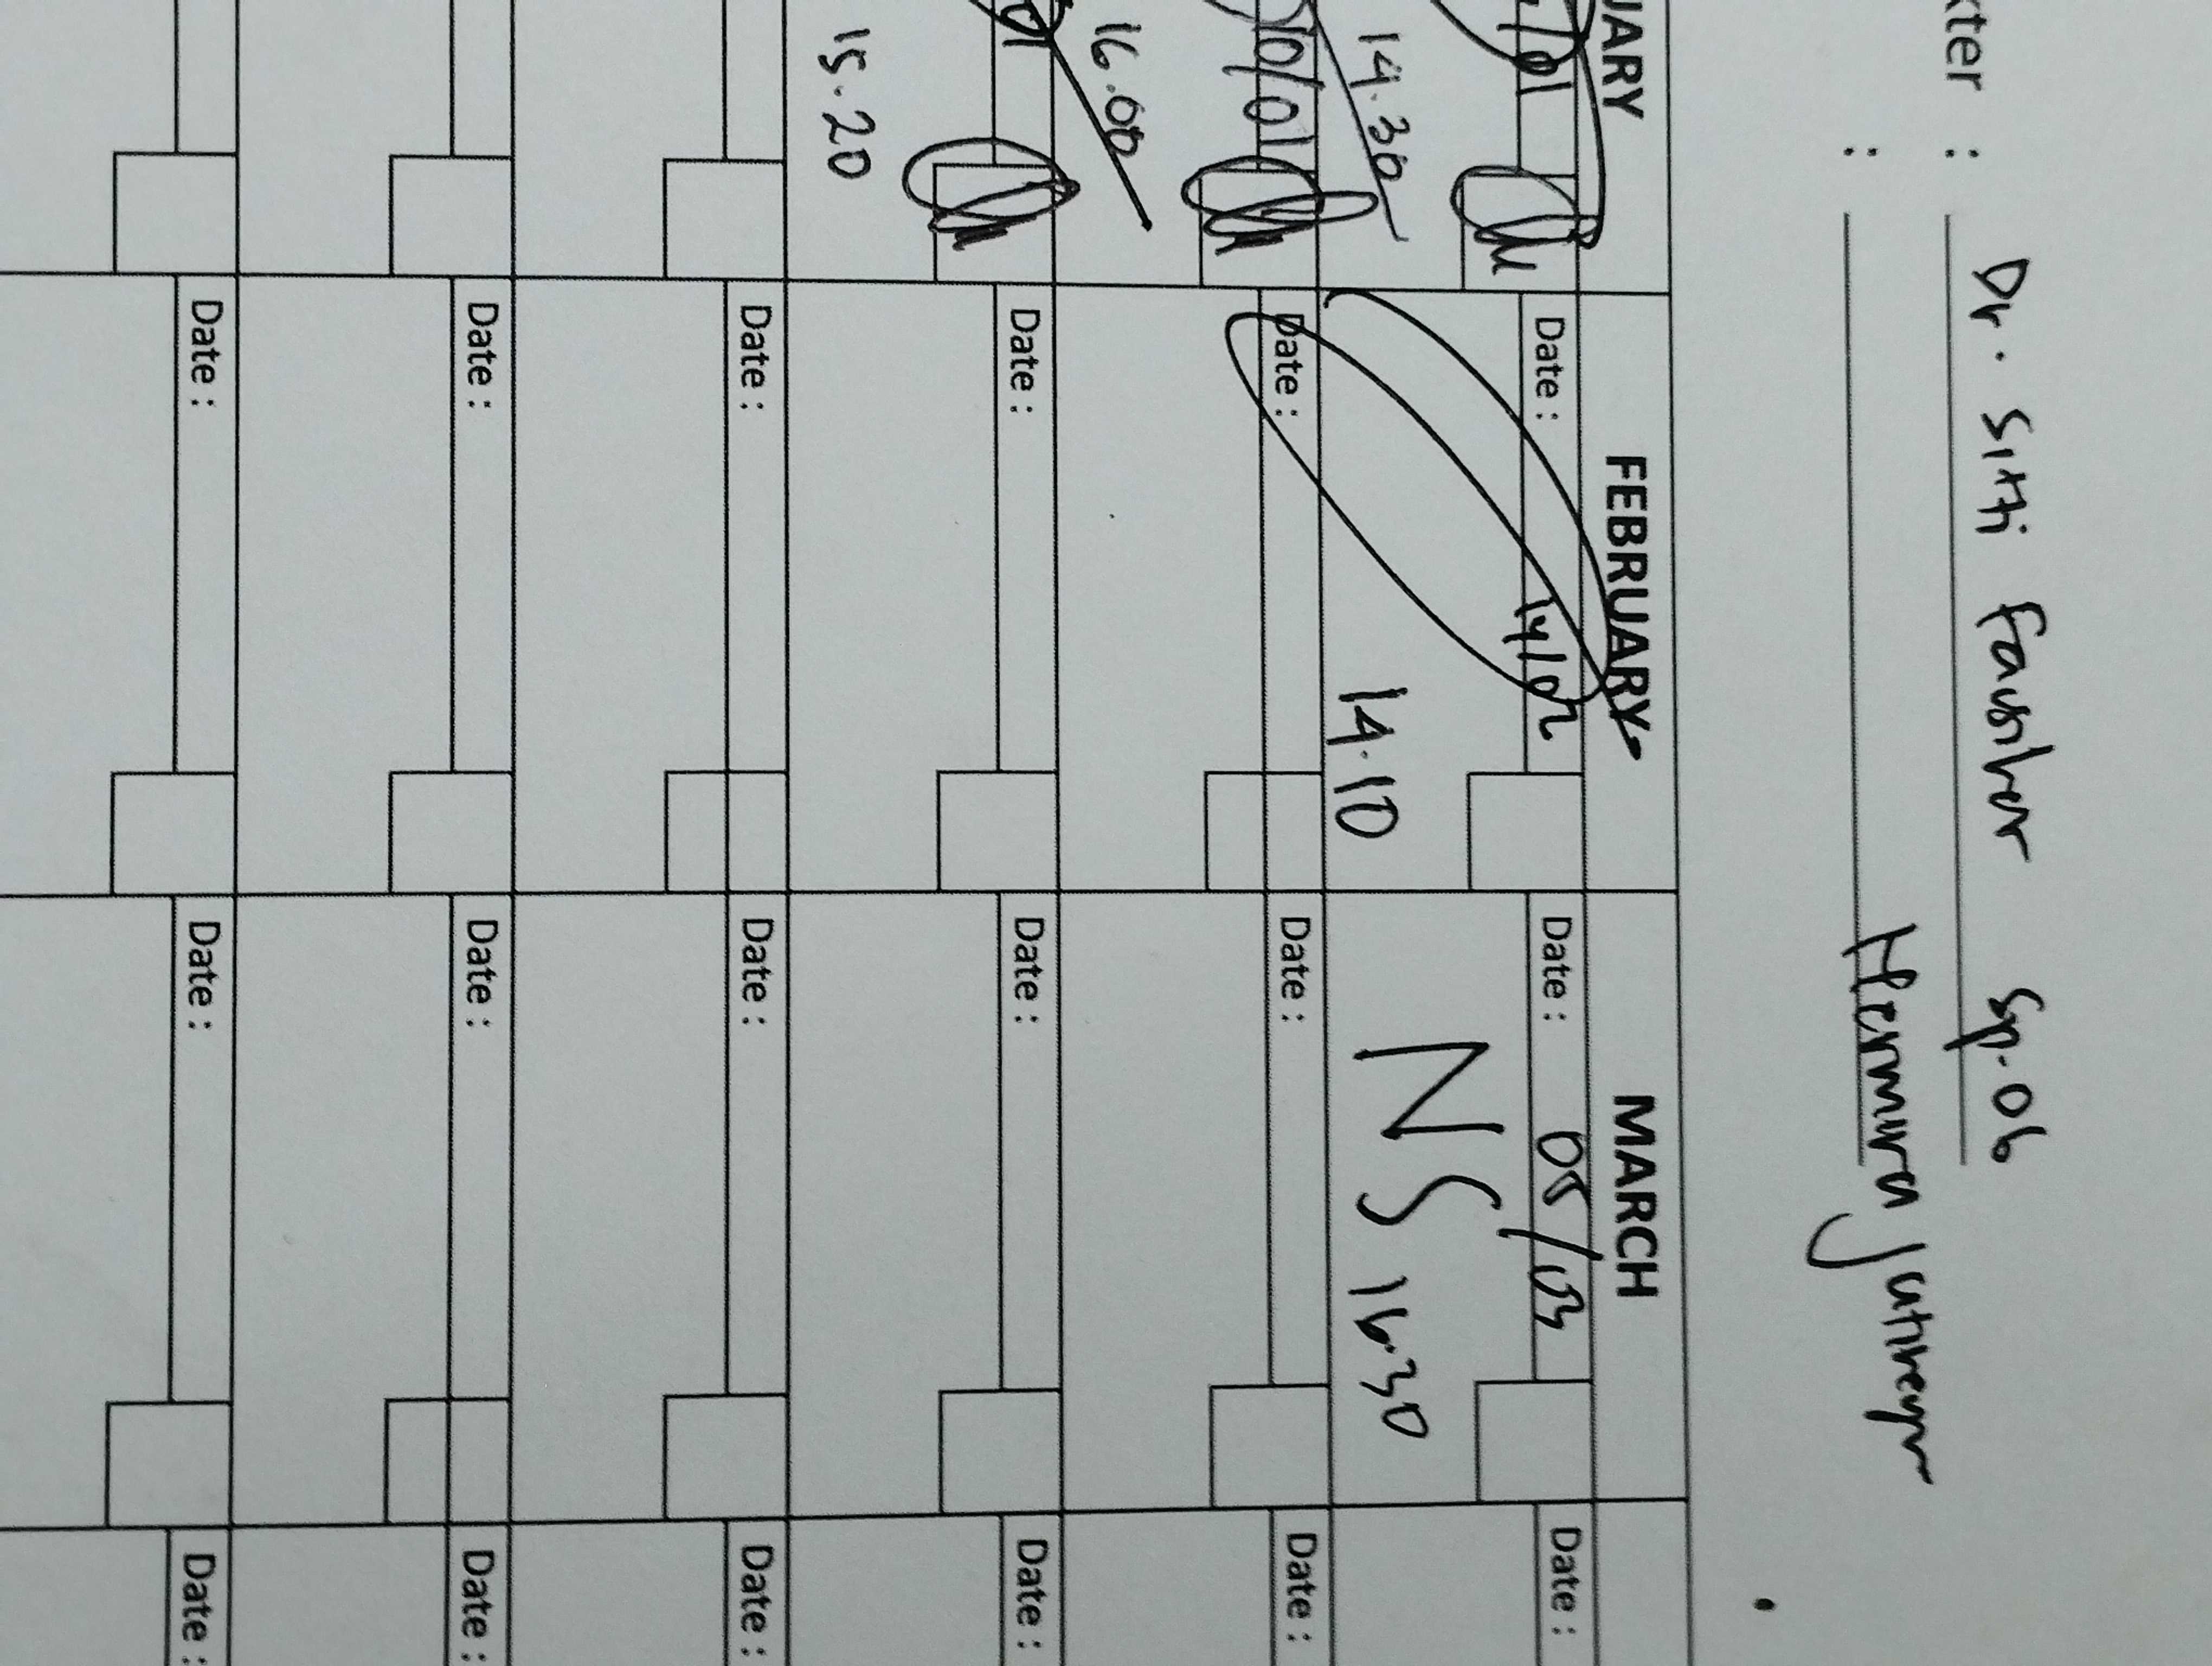 kter : Dr. Sitti Fausiher Sp.OG
:
UARY FEBRUARY MARCH
/01 Date : 14/02 Date : 05/03 Date :
14.30 14.10 NS 16.30
/01 Date : Date : Date :
16.00
Date : Date : Date :
15.20
Date : Date : Date :
Date : Date : Date :
Date : Date : Date :